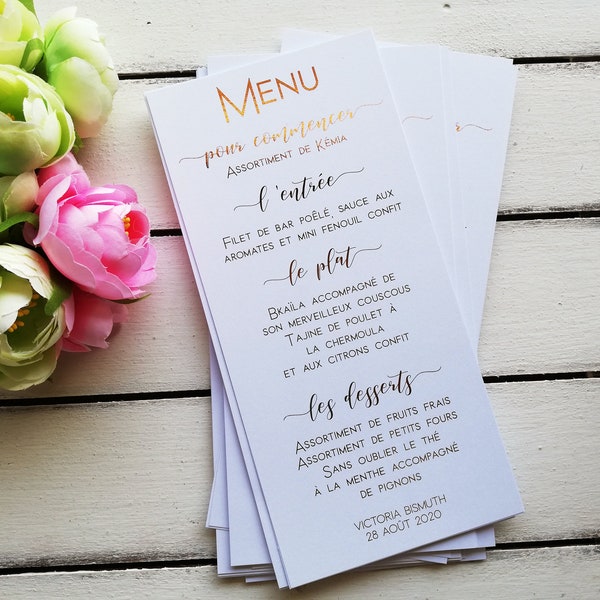 Menu
pour commencer
Assortiment de Kémia
l'entrée
Filet de bar poêlé, sauce aux
aromates et mini fenouil confit
le plat
Bkaïla accompagné de
son merveilleux couscous
Tajine de poulet à
la chermoula
et aux citrons confit
les desserts
Assortiment de fruits frais
Assortiment de petits fours
Sans oublier le thé
à la menthe accompagné
de pignons
VICTORIA BISMUTH
28 AOÛT 2020